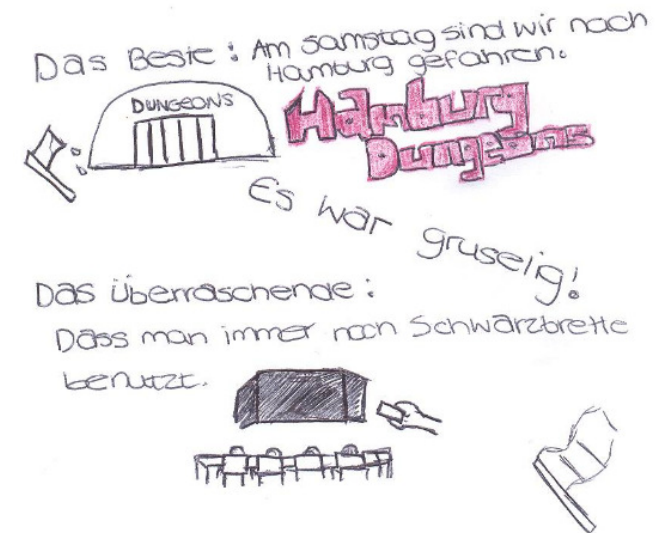 Das Beste: Am samstag sind wir nach
Hamburg gefahren.
DUNGEONS
Hamburg
Dungeons
Es war gruselig!
Das überraschende:
Dass man immer noch Schwarzbrette
benutzt.